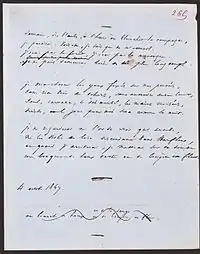 265
Demain, dès l'aube, à l'heure où blanchit la campagne,
je partirai. Vois-tu, je sais que tu m'attends.
J'irai par la forêt, j'irai par la montagne.
je ne puis demeurer loin de toi plus longtemps.
je marcherai les yeux fixés sur mes pensées,
sans rien voir au dehors, sans entendre aucun bruit,
Seul, inconnu, le dos courbé, les mains croisées,
triste, et le jour pour moi sera comme la nuit.
je ne regarderai ni l'or du soir qui tombe,
ni les voiles au loin descendant vers Harfleur,
et quand j'arriverai, je mettrai sur ta tombe
un bouquet de houx vert et de bruyère en fleur.
4 1847.